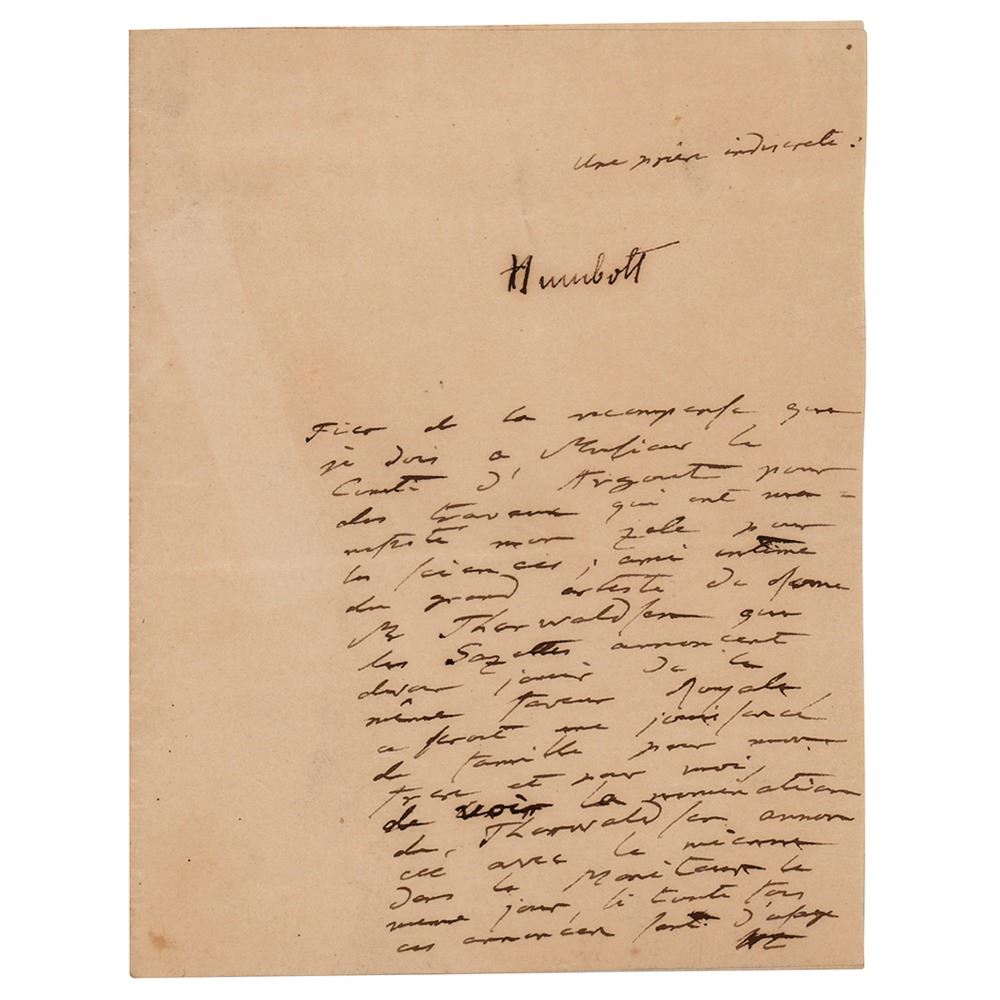 Une prière indiscrete:
Humboltt
Fier de la recompense que
je dois a Monsieur le
Comte d'Argout pour
des travaux qui ont ma-
nifesté mon zele pour
les sciences, ami intime
du grand artiste de Rome
Mr Thorwaldsen que
les Gazettes annoncent
devoir jouir de la
même faveur Royale,
ce seroit une jouissance
de famille pour mon
frere et pour moi,
de voir la nomination
de Thorwaldsen annon
cée avec la mienne
dans le Moniteur le
meme jour, si toute fois
ces annonces sont d'usage